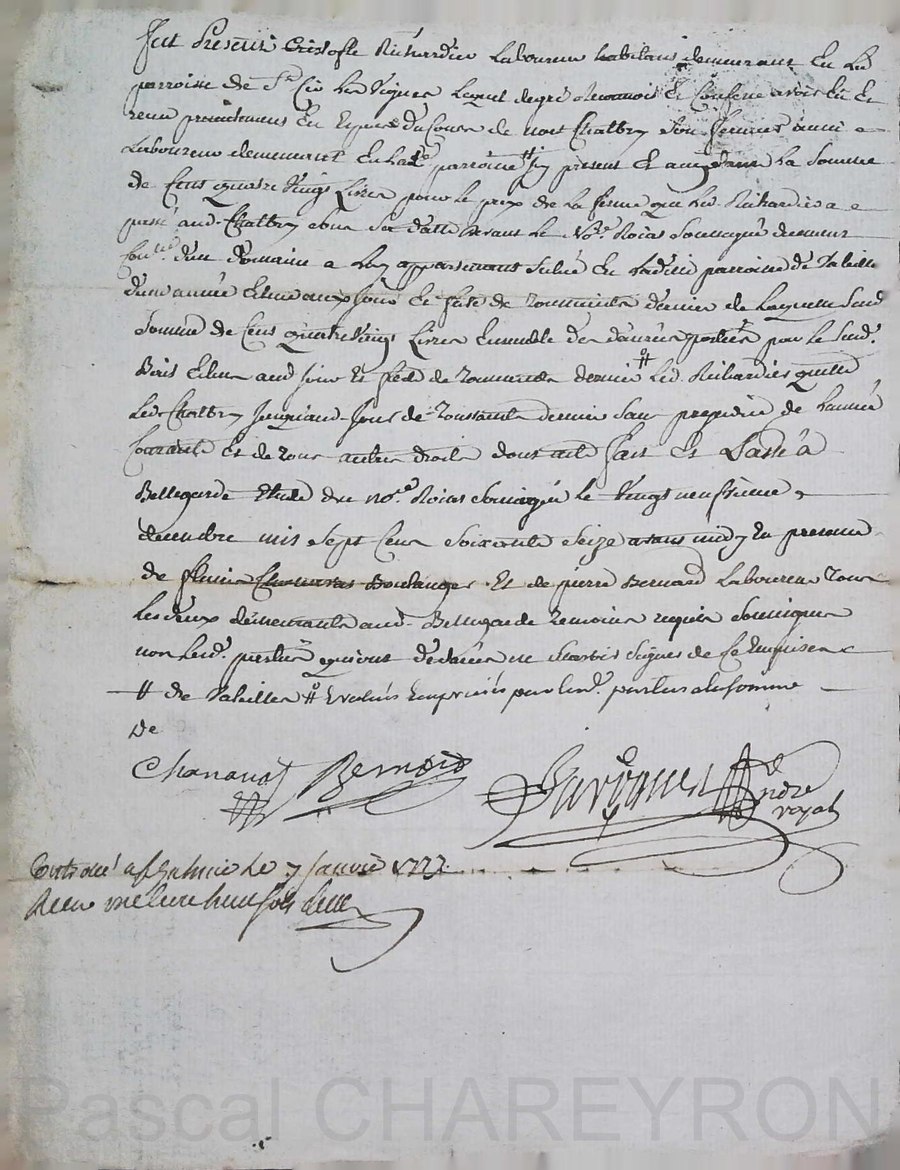 fut Présent Cristofle Richardier Laboureur habitant demeurant En La
parroisse de St Cir Les Vignes Lequel de gré Reconnoit Et Confesse avoir Eu Et
receu presentement En Espèces du Cours de Noel Chatbry Son fermier aussi
Laboureur demeurant En Lade parroisse # ici present Et acceptant La Somme
de Cent quatre Vingt Livres pour le prix de La ferme que Led. Richardier a
passé aud. Chatbry Sous Sa datte devant Le Nore Roial Soussigné
d'un Domaine a Luy appartenant Situé En Ladite parroisse de Valeille
d'une année Echue aux jour Et feste de Toussaints dernier de Laquelle Susd
Somme de Cent Quatre Vingt Livres Ensemble des denrées portées par le Susd.
Bail Echu aud jour Et feste de Toussaints dernier # Led. Richardier quitte
Led. Chatbry jusqu'aud. jour de Toussaints dernier Sans prejudice de L'année
Courante Et de tous autres droits dont acte fait Et Passé à
Bellegarde Etude du nore Roial Soussigné Le Vingt neufvieme
decembre mil Sept Cent Soixante Seize avant midy En presence
de Boulanger Et de pierre Bernard Laboureur tous
Les deux demeurants aud. Bellegarde Temoins requis Soussignés
non Lesd. parties qui ont declaré ne Scavoir Signer de Ce Enquises
# de Valeilles # Evalués Lesd. parties a la somme
de
Chananat Bernard André
royal
Controllé a St Galmier Le 7 janvier 1777.
Receu